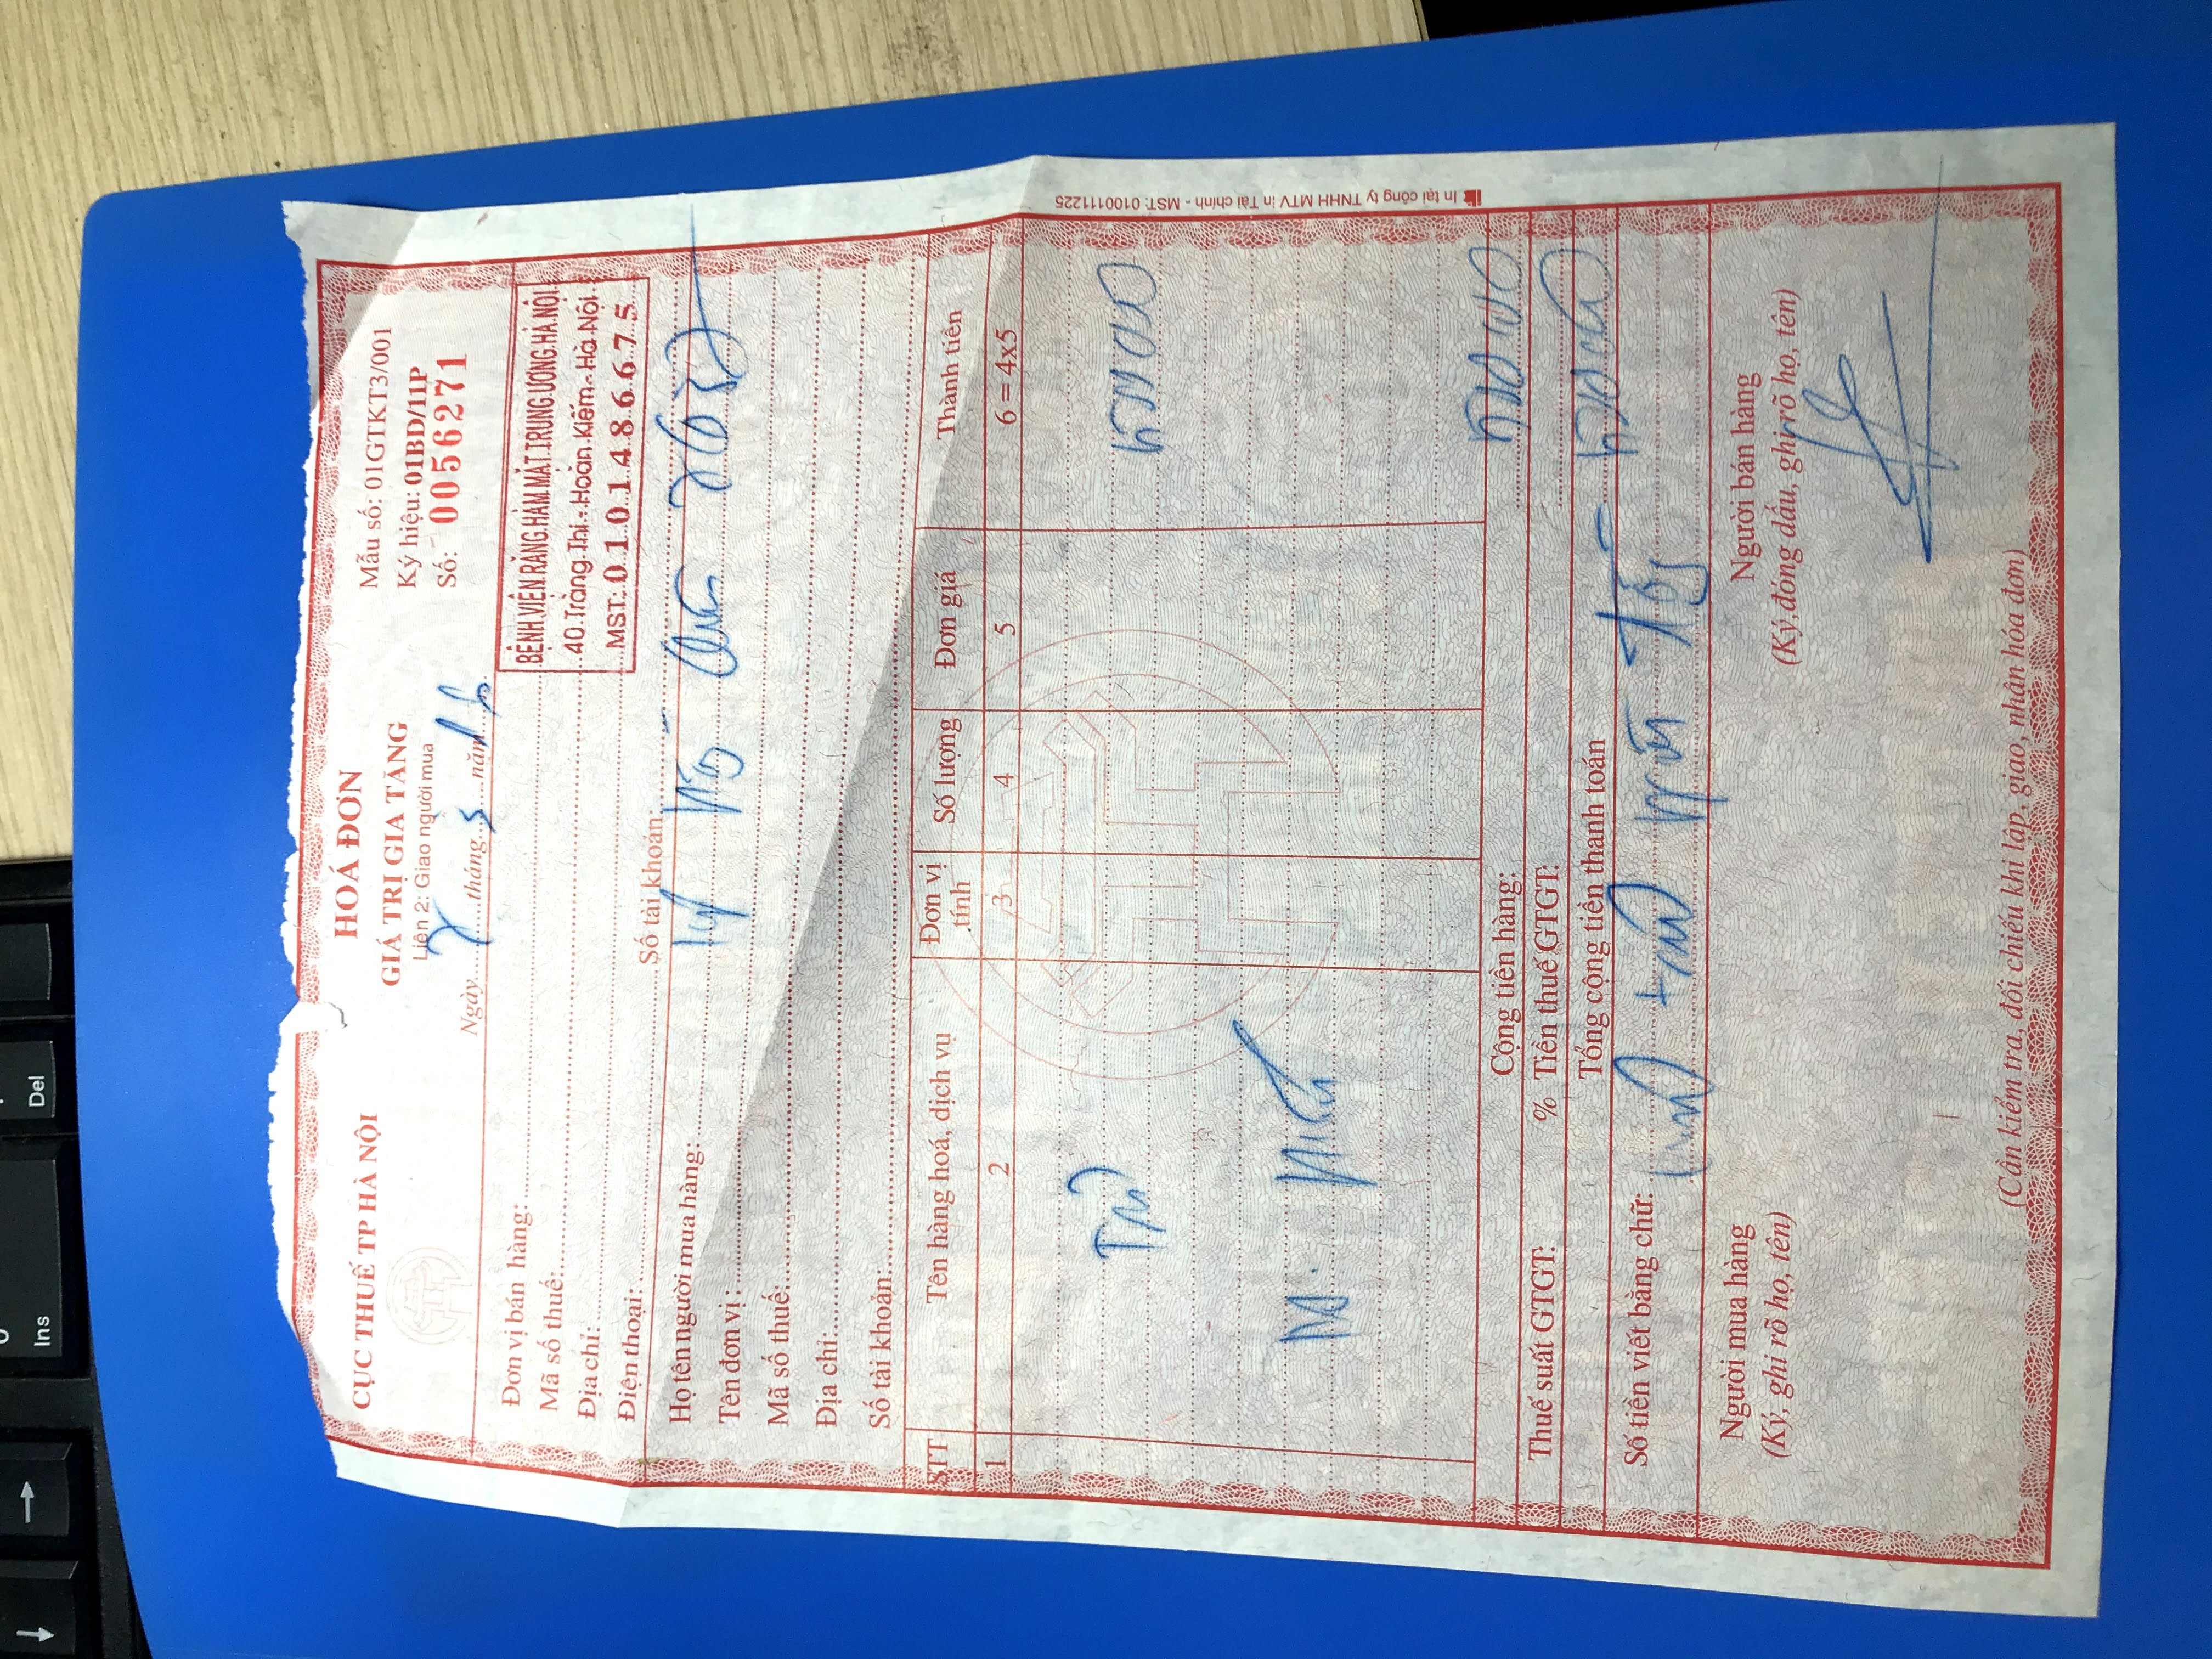 Ins
Del
CỤC THUẾ TP HÀ NỘI
HOÁ ĐƠN
GIÁ TRỊ GIA TĂNG
Liên 2: Giao người mua
Ngày 7 tháng 5 năm 16
Mẫu số: 01GTKT3/001
Ký hiệu: 01BD/11P
Số: 0056271
Đơn vị bán hàng:
Mã số thuế:
Địa chỉ:
Điện thoại: Số tài khoản:
BỆNH VIỆN RĂNG HÀM MẶT TRUNG ƯƠNG HÀ NỘI
40 Tràng Thi - Hoàn Kiếm - Hà Nội
MST: 0101486675
Họ tên người mua hàng:
Tên đơn vị :
Mã số thuế:
Địa chỉ:
Số tài khoản:
STT Tên hàng hoá, dịch vụ Đơn vị tính Số lượng Đơn giá Thành tiền
1 2 3 4 5 6 = 4x5
Cộng tiền hàng:
Thuế suất GTGT: % Tiền thuế GTGT:
Tổng cộng tiền thanh toán
Số tiền viết bằng chữ:
Người mua hàng
(Ký, ghi rõ họ, tên)
Người bán hàng
(Ký,đóng dấu, ghi rõ họ, tên)
(Cần kiểm tra, đối chiếu khi lập, giao, nhận hóa đơn)
In tại công ty TNHH MTV in Tài chính - MST: 0100111225